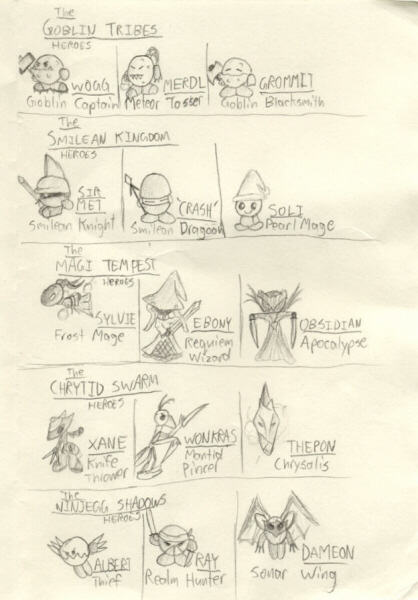 The
GOBLIN TRIBES
HEROES
WOGG
Goblin Captain
MERDL
Meteor Tosser
GROMMIT
Goblin Blacksmith
The
SMILEAN KINGDOM
HEROES
SIR
MET
Smilean Knight
"CRASH"
Smilean Dragoon
SOLI
Pearl Mage
The
MAGI TEMPEST
HEROES
SYLVIE
Frost Mage
EBONY
Requiem
Wizard
OBSIDIAN
Apocalypse
The
CHRYTID SWARM
HEROES
XANE
Knife
Thrower
WONKRAS
Mantid
Pincer
THEPON
Chrysalis
The
NINJEGG SHADOWS
HEROES
ALBERT
Thief
RAY
Realm Hunter
DAMEON
Sonar Wing